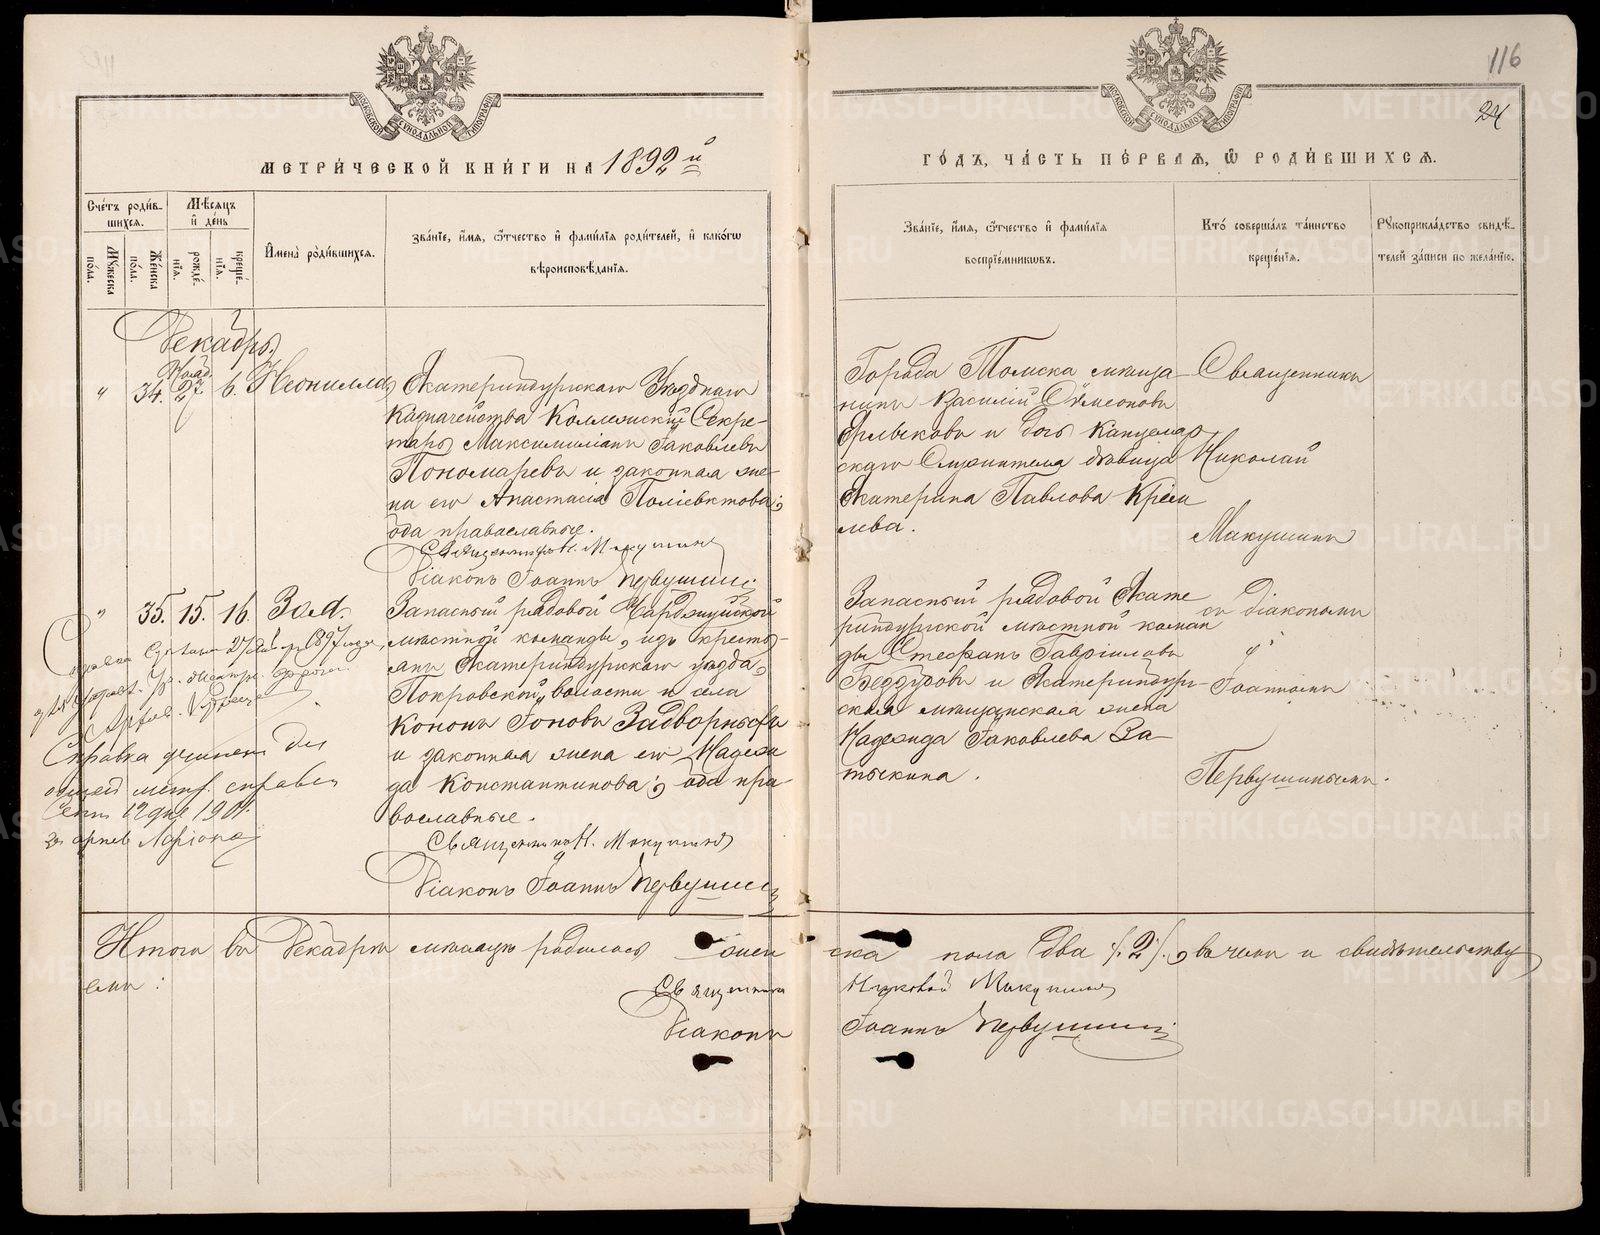 116
24
МОСКОВСКОЙ СѴНОДАЛЬНОЙ ТИПОГРАФІИ
МОСКОВСКОЙ СѴНОДАЛЬНОЙ ТИПОГРАФІИ
МЕТРИ́ЧЕСКОЙ КНИ́ГИ НА 1892 й
ГО́ДЪ, ЧА́СТЬ ПЕ́РВАѦ, Ѽ РОДИ́ВШИХСѦ.
Сче́тъ роди́в-
шихсѧ.
Мꙋ́жеска
по́ла.
Же́нска
по́ла.
Мѣ́сѧцъ
и҆ де́нь
рожде́-
нїѧ.
креще́-
нїѧ.
И҆мена̀ роди́вшихсѧ.
Зва́нїе, и҆́мѧ, ѻ҆́тчество и҆ фами́лїѧ роди́телей, и҆ како́гѡ
вѣроисповѣ́данїѧ.
Зва́нїе, и҆́мѧ, ѻ҆́тчество и҆ фами́лїѧ
воспрїе́мникѡвъ.
Кто̀ соверша́лъ та́инство
креще́нїѧ.
Рꙋкоприкла́дство свидѣ́-
телей за́писи по жела́нїю.
Декабрь
" 34. Нояб. 27. 6. Неонилла
Екатеринбургскаго Уѣзднаго
Казначейства Коллежскій Секре-
тарь Максимиліанъ Іаковлевъ
Пономаревъ и законная же-
на его Анастасія Поліевктова;
оба православные.
Священникъ Н. Макушинъ
Діаконъ Іоаннъ Первушинъ
Города Томска мѣща-
нинъ Василій Сѵмеоновъ
и дочь Канцеляр-
скаго Служителя дѣвица
Екатерина Павлова
лева.
Священникъ
Николай
Макушинъ
" 35. 15. 16. Зоя.
Запасный рядовой
мѣстной команды, изъ кресть-
янъ Екатеринбургскаго уѣзда,
Покровской волости и села
Кононъ Іоновъ Задворныхъ
и законная жена его Надеж-
да Константинова; оба пра-
вославные.
Священникъ Н. Макушинъ
Діаконъ Іоаннъ Первушинъ
Запасный рядовой Екате-
ринбургской мѣстной коман-
ды Стефанъ Гавріиловъ
Беззубовъ и Екатеринбург-
ская мѣщанская жена
Надежда Іаковлева За-
тыкина.
съ діакономъ
Іоанномъ
Первушинымъ.
27 1897 года,
Справка учинена
метр.
Сент. 12 дня 1901.
Итого въ Декабрѣ мѣсяцѣ родилось жен-
ска пола два /:2:/, въ чемъ и свидѣтельству-
емъ:
Священникъ Николай Макушинъ
Діаконъ Іоаннъ Первушинъ
METRIKI.GASO-URAL.RU